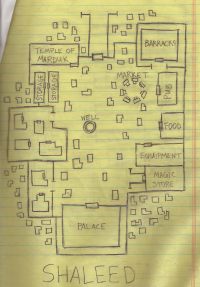 TEMPLE OF
MARDUK
BARRACKS
STORAGE
STORAGE
MARKET
PUB
WELL
FOOD
EQUIPMENT
MAGIC
STORE
PALACE
SHALEED